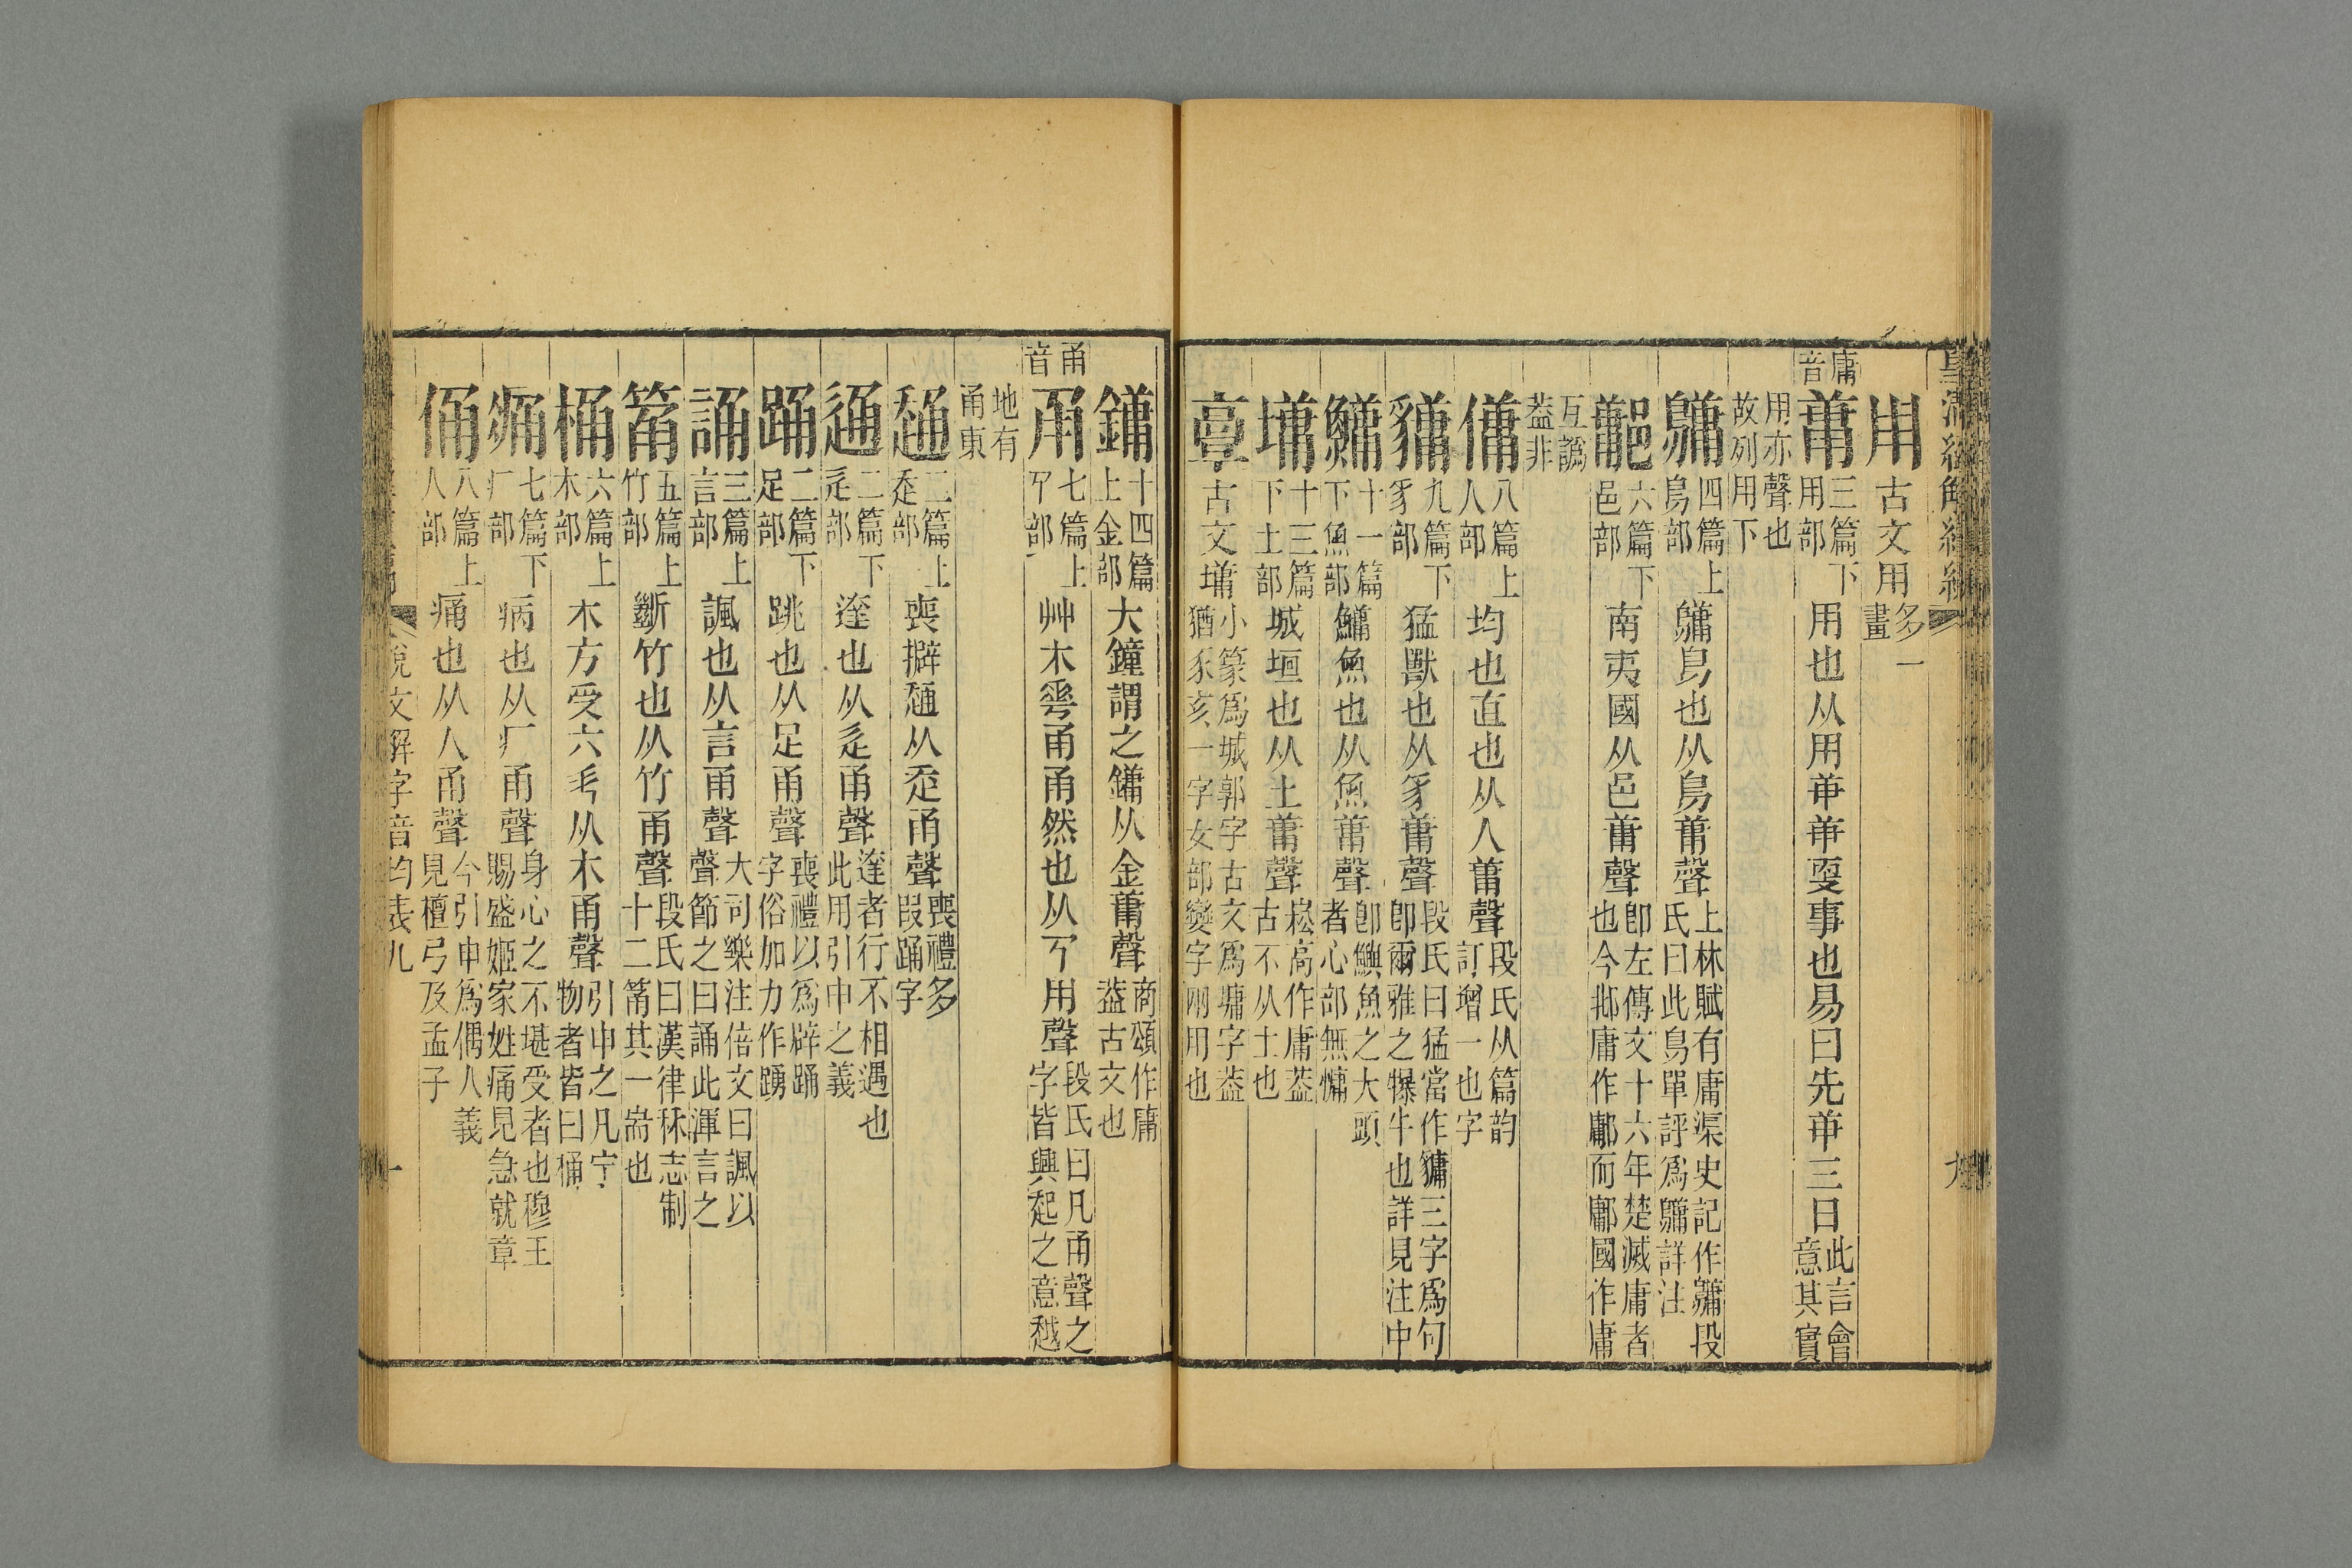 皇清經解續編
九
用 古文用 多一畫
庸音
𤰆 三篇下用部 用也从用𢆉𢆉更事也易曰先𢆉三日 此言會意其實
用亦聲也故列用下
鷛 四篇上鳥部 鷛鳥也从鳥庸聲 上林賦有庸渠史記作鷛段氏曰此鳥單評爲鷛詳注
鄘 六篇下邑部 南夷國从邑庸聲 卽左傳文十六年楚滅庸者也今邶庸作鄘而鄘國作庸
互譌葢非
傭 八篇上人部 均也直也从人庸聲 段氏从篇韵訂增一也字
䝆 九篇下豸部 猛獸也从豸庸聲 段氏曰猛當作䝆三字爲句卽爾雅之犦牛也詳見注中
鱅 十一篇下魚部 鱅魚也从魚庸聲 卽鰱魚之大頭者心部無慵
墉 十三篇下土部 城垣也从土庸聲 崧高作庸葢古不从土也
𩫖 古文墉 小篆爲城郭字古文爲墉字葢猶豕亥一字女部孌字兩用也
鏞 十四篇上金部 大鐘謂之鏞从金庸聲 商頌作庸葢古文也
甬音
甬 七篇上𢎘部 艸木䓨甬甬然也从𢎘用聲 段氏曰凡甬聲之字皆興起之意越
地有甬東
𧻹 二篇上走部 喪擗𧻹从走甬聲 喪禮多叚踊字
通 二篇下辵部 達也从辵甬聲 達者行不相遇也此用引申之義
踊 二篇下足部 跳也从足甬聲 喪禮以爲辟踊字俗加力作踴
誦 三篇上言部 諷也从言甬聲 大司樂注倍文曰諷以聲節之曰誦此渾言之
筩 五篇上竹部 斷竹也从竹甬聲 段氏曰漢律秝志制十二筩其一耑也
桶 六篇上木部 木方受六𠦜从木甬聲 引申之凡宁物者皆曰桶
痛 七篇下疒部 病也从疒甬聲 身心之不堪受者也穆王賜盛姬家姓痛見急就章
俑 八篇上人部 痛也从人甬聲 今引申爲偶人義見檀弓及孟子
說文解字音均表九
一